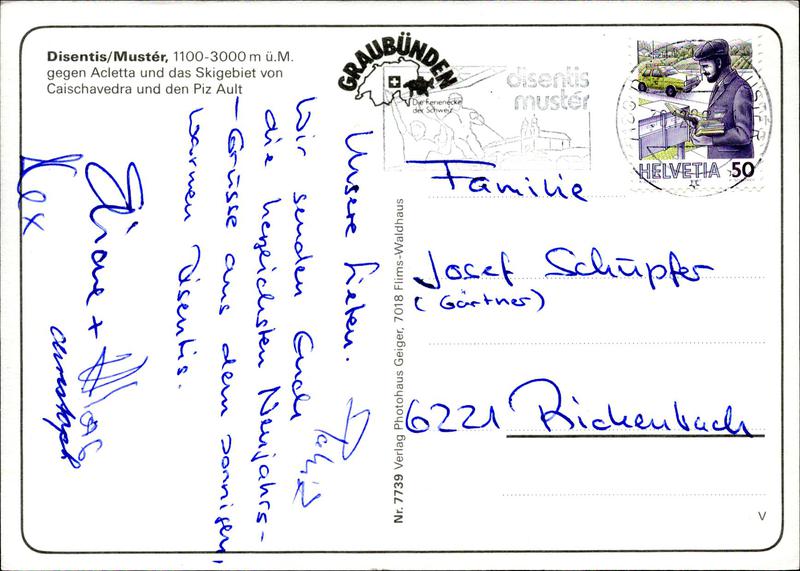 Disentis/Mustér, 1100-3000 m ü.M.
gegen Acletta und das Skigebiet von
Caischavedra und den Piz Ault
GRAUBÜNDEN
Die Ferienecke
der Schweiz
disentis
mustér
HELVETIA 50
Unsere Lieben.
Wir senden Euch
die herzlichsten Neujahrs-
-Grüsse aus dem sonnigen,
warmen Disentis.
Eliane +
Alex
christoph
Familie
Josef Schüpfer
(Gärtner)
6221 Rickenbach
Nr. 7739 Verlag Photohaus Geiger, 7018 Flims-Waldhaus
V